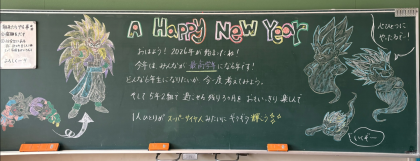 A Happy New Year
おはよう! 2026年が始まったね!
今年は みんなが 最高学年になる年です!
どんな6年生になりたいか 今一度 考えてみよう。
そして 5年2組で 過ごせる 残り3ヶ月を おもいっきり 楽しんで
1人ひとりが スーパーサイヤ人みたいに
心ひとつに
やったるでー!